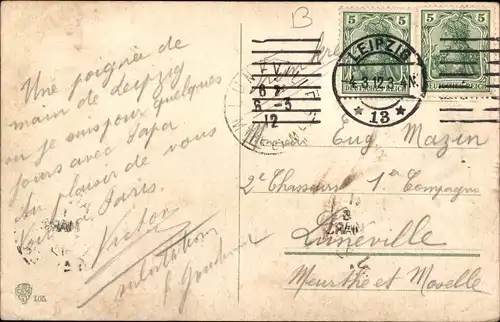 B
Une poignée de
main de Leipzig
ou je suis pour quelques
jours avec Papa
Au plaisir de vous
voir à Paris.
Victor
salutation
5
5
DEUTSCHES REICH
LEIPZIG
* 13 *
6-3
12
Eug Mazin
2e Chasseurs 1a Compagnie
Lunéville
Meurthe et Moselle
105.